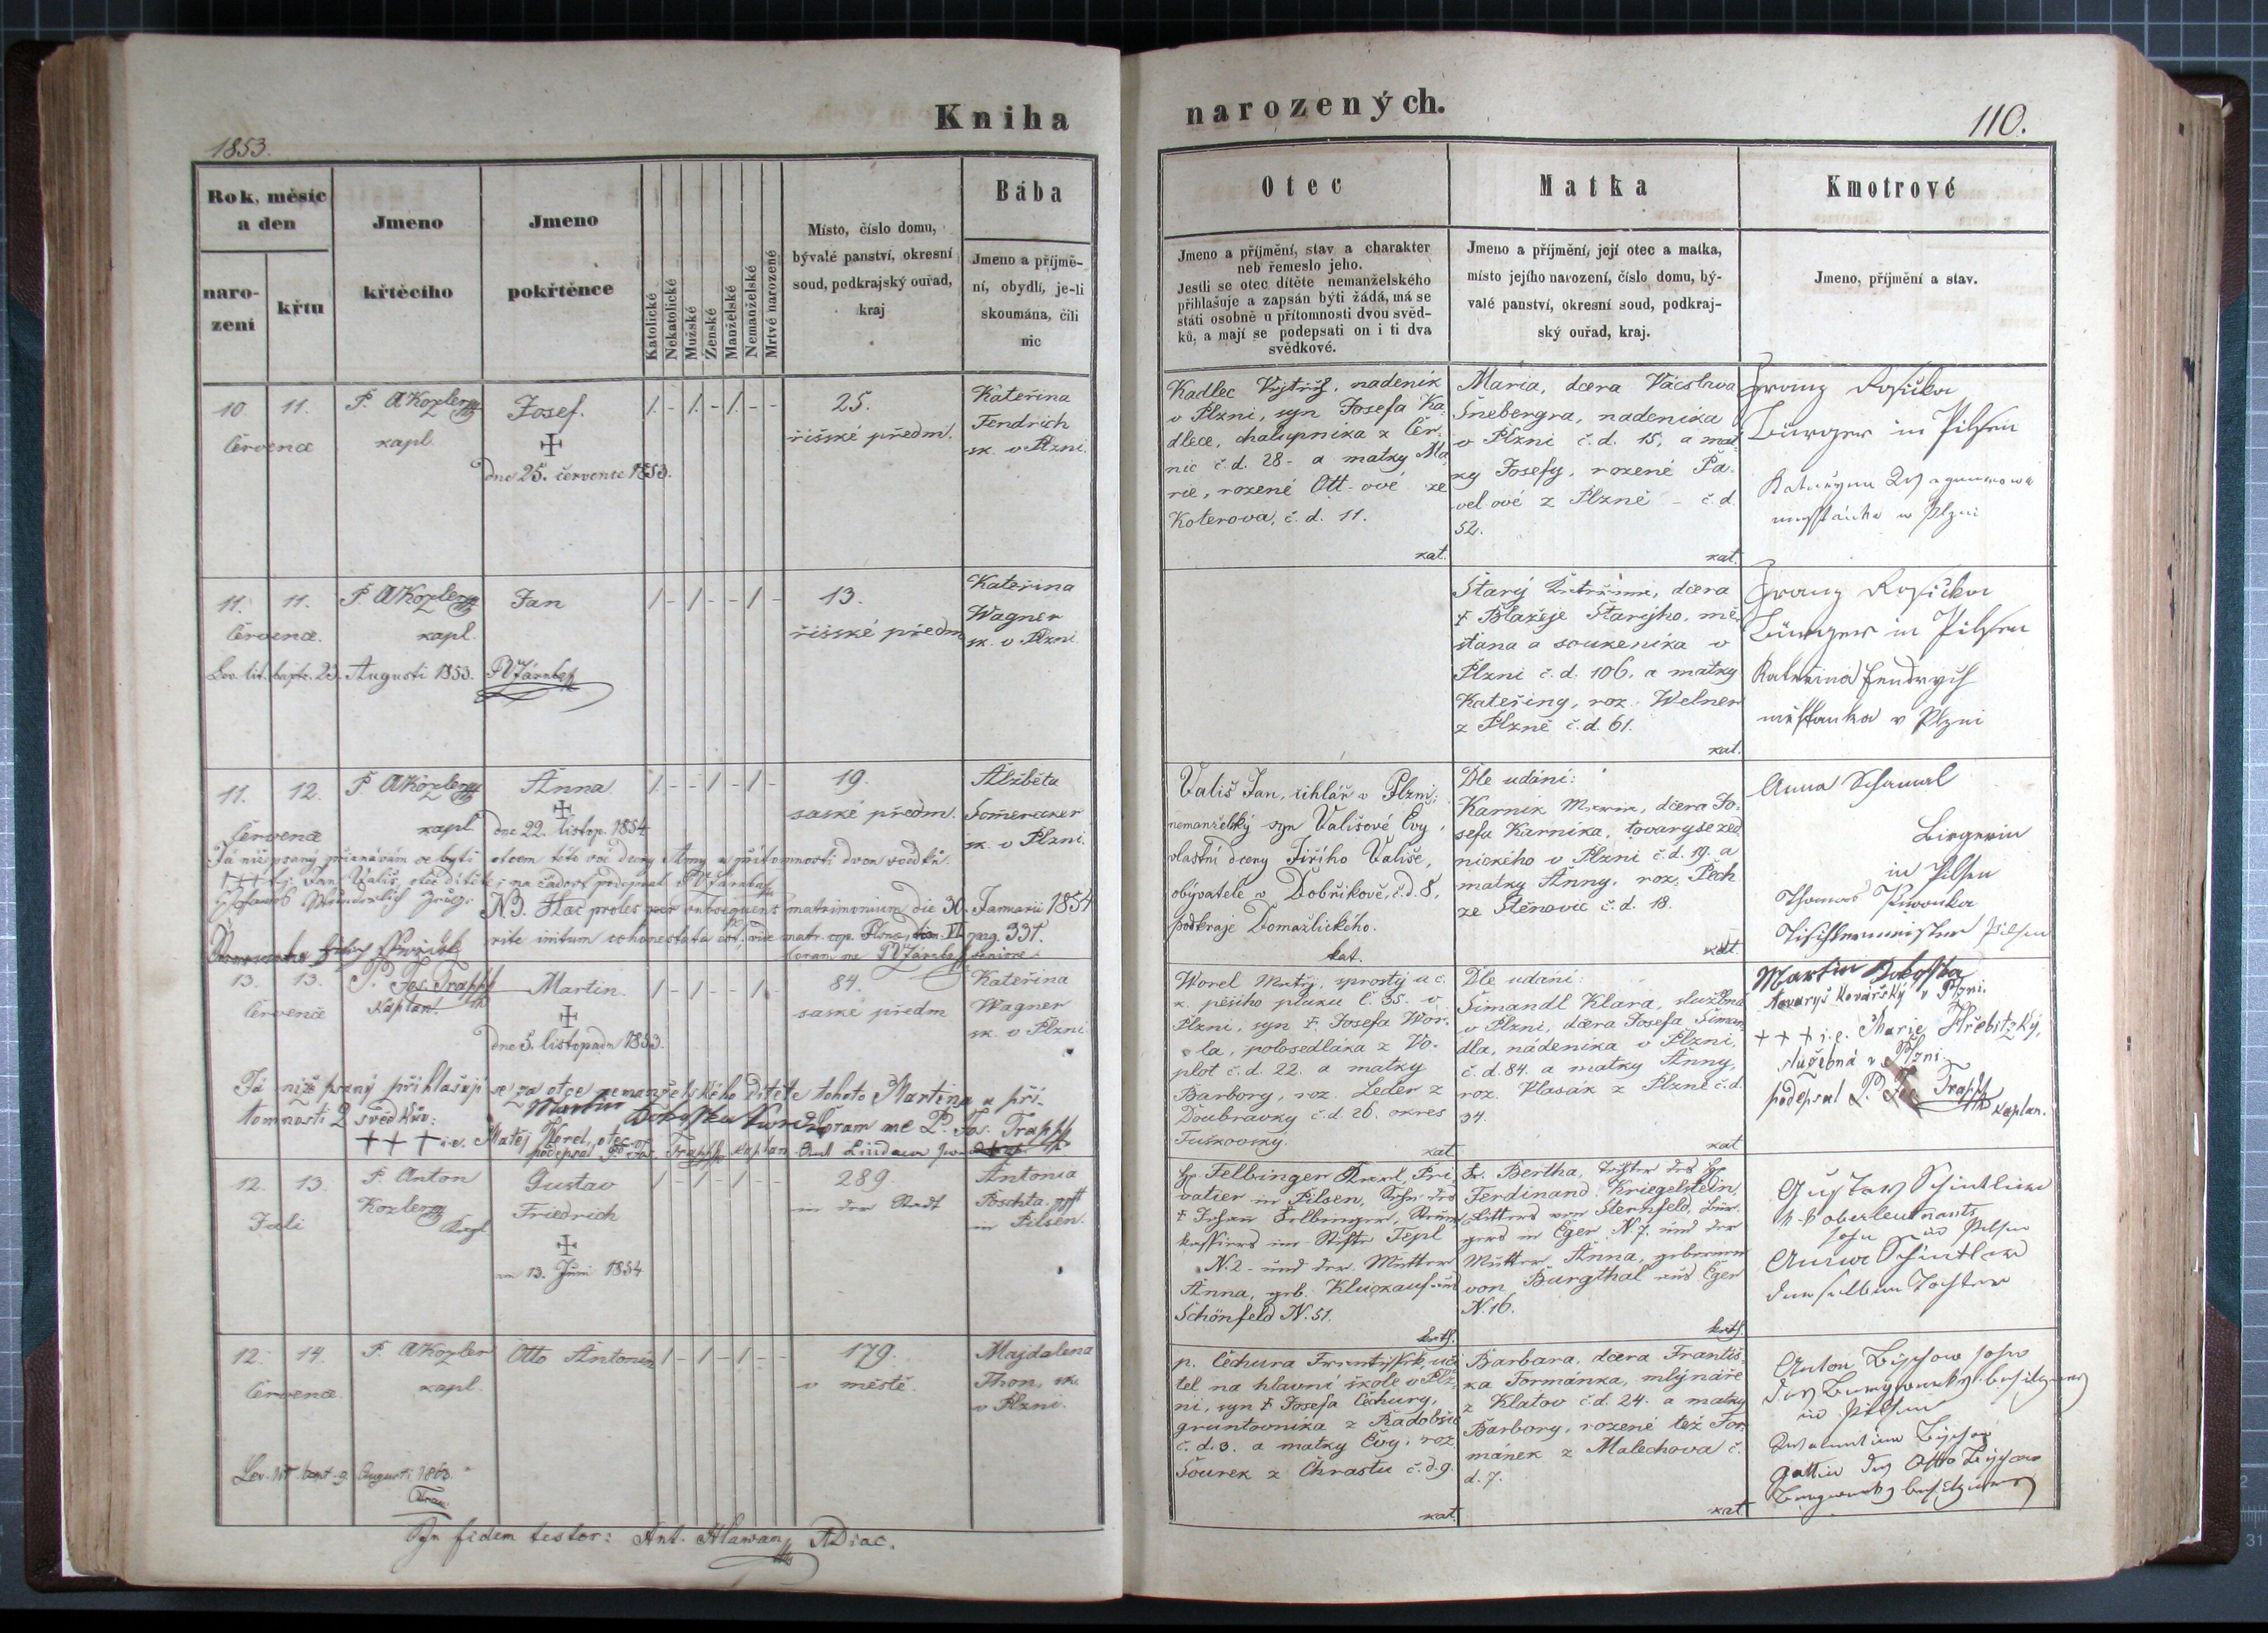 Kniha
1853.
Rok, měsíc
a den
naro-
zení
křtu
Jmeno
křtěcího
Jmeno
pokřtěnce
Katolické
Nekatolické
Mužské
Ženské
Manželské
Nemanželské
Mrtvé narozené
Místo, číslo domu,
bývalé panství, okresní
soud, podkrajský ouřad,
kraj
Bába
Jmeno a příjmě-
ní, obydlí, je-li
skoumána, čili
nic
10. 11.
Července
P. A Kozler
kapl.
Josef.
dne 25. července 1853.
25.
říšské předm.
Kateřina
Fendrich
sk. v Plzni.
11. 11.
Července.
P. A Kozler
kapl.
Jan
13.
říšské předm
Kateřina
Wagner
sk. v Plzni
Lev. lit. bapt. 23. Augusti 1853.
11. 12.
Července
P. A Kozler
kapl
Anna
dne 22. listop. 1854
19.
saské předm.
Alžběta
Somerecker
sk. v Plzni.
Já níže psaný přiznávám se býti otcem této své dcery Anny v přítomnosti dvou svědků.
Jan Vališ, otec dítěte; na žádost podepsal
N.B. Haec proles per subsequens matrimonium die 30. Januarii 1854
rite initum cohonestata est. vide matr. cop. pag. 331.
coram me
13. 13.
Července
P. Jos. Trapp
Kaplan.
Martin.
dne 5. listopadu 1853.
84.
saské předm
Kateřina
Wagner
sk. v Plzni
Já níže psaný přihlašuji se za otce nemanželského dítěte tohoto Martina u pří-
tomnosti 2 svědkův:
+ + + i.e. Matěj Worel, otec
coram me P. Jos. Trapp
podepsal P. Jos. Trapp kaplan
12. 13.
Juli
P. Anton
Kozler
Kapl
Gustav
Friedrich
am 13. Juni 1854
289.
in der Stadt
Antonia
Poschta
in Pilsen.
12. 14.
Července.
P. A Kozler
kapl.
Otto Antonín
179.
v městě.
Majdalena
Thon, sk.
v Plzni.
Lev. lit. bapt. 9. Augusti 1863.
In fidem testor: Ant. Hlawan ADiac.
narozených.
110.
Otec
Jmeno a příjmění, stav a charakter
neb řemeslo jeho.
Jestli se otec dítěte nemanželského
přihlašuje a zapsán býti žádá, má se
státi osobně u přítomnosti dvou svěd-
ků, a mají se podepsati on i ti dva
svědkové.
Matka
Jmeno a příjmění, její otec a matka,
místo jejího narození, číslo domu, bý-
valé panství, okresní soud, podkraj-
ský ouřad, kraj.
Kmotrové
Jmeno, příjmění a stav.
Kadlec Vojtěch, nadeník
v Plzni, syn Josefa Ka-
dlece, chalupníka z Čer-
nic č.d. 28. a matky Ma-
rie, rozené Ott-ové ze
Koterova, č.d. 11.
kat.
Maria, dcera Václava
Šnebergra, nadeníka
v Plzni č.d. 15, a mat-
ky Josefy, rozené Pa-
vel-ové z Plzně č.d.
52.
kat.
Franz Rosička
Bürger in Pilsen
Kateřyna Wagnerowa
w Plzni
Starý Kateřina, dcera
† Blažeje Starýho, mě-
šťana a soukeníka v
Plzni č.d. 106. a matky
Kateřiny, roz. Welner
z Plzně č.d. 61.
kat.
Franz Rosička
Bürger in Pilsen
Kateřina Fendrych
měšťanka v Plzni
Vališ Jan, cihlář v Plzni;
nemanželský syn Vališové Evy,
vlastní dcery Jiřího Vališe,
obývatele v Dobříkově, č.d. 8,
podkraje Domažlického.
kat.
Dle udání:
Karník Marie, dcera Jo-
sefa Karníka, tovaryše zed-
nického v Plzni č.d. 19. a
matky Anny, roz. Pech
ze Štěnovic č.d. 18.
kat.
Anna Schamal
Birgerin
in Pilsen
Thomas
Tischlermeister Pilsen
Worel Matěj, sprostý u c.
k. pěšího pluku č. 35. v
Plzni, syn †. Josefa Wor-
la, polosedláka z Vo-
plot č.d. 22. a matky
Barbory, roz. Leder z
Doubravky č.d. 26. okres
Tuškovský.
kat
Dle udání:
Šimandl Klara, služebná
v Plzni, dcera Josefa Šiman-
dla, nádeníka v Plzni,
č.d. 84. a matky Anny,
roz. Klasák z Plzně č.d.
34.
kat
Martin
tovaryš kovářský v Plzni.
+ + + i.e. Marie Hřebitzký,
služebná v Plzni
podepsal P. Jos. Trapp kaplan.
H. Felbinger Karl, Pri-
vatier in Pilsen, Sohn des
† Johann Felbinger,
im Stifte Tepl
N. 2 - und der Mutter
Anna, geb. Kluckauf aus
Schönfeld N. 51.
kath.
Fr. Bertha, Tochter des H.
Ferdinand Kriegelstein,
Ritters von Sternfeld, Bür-
gers in Eger N. 7. und der
Mutter Anna, geborenen
von Burgthal aus Eger
N. 16.
kath.
Gustav
k. k. oberleutnants
sohn aus Pilsen
Anna
desselben Tochter
p. Čechura František, uči-
tel na hlavní škole v Plz-
ni, syn † Josefa Čechury,
gruntovníka z Radobčic
č.d. 3. a matky Evy, roz.
Sourek z Chrástu č.d. 9.
kat.
Barbara, dcera Františ-
ka Formánka, mlýnáře
z Klatov č.d. 24. a matky
Barbory, rozené též For-
mánek z Malechova č.
d. 7.
kat.
Anton
in Pilsen
Gattin des Otto